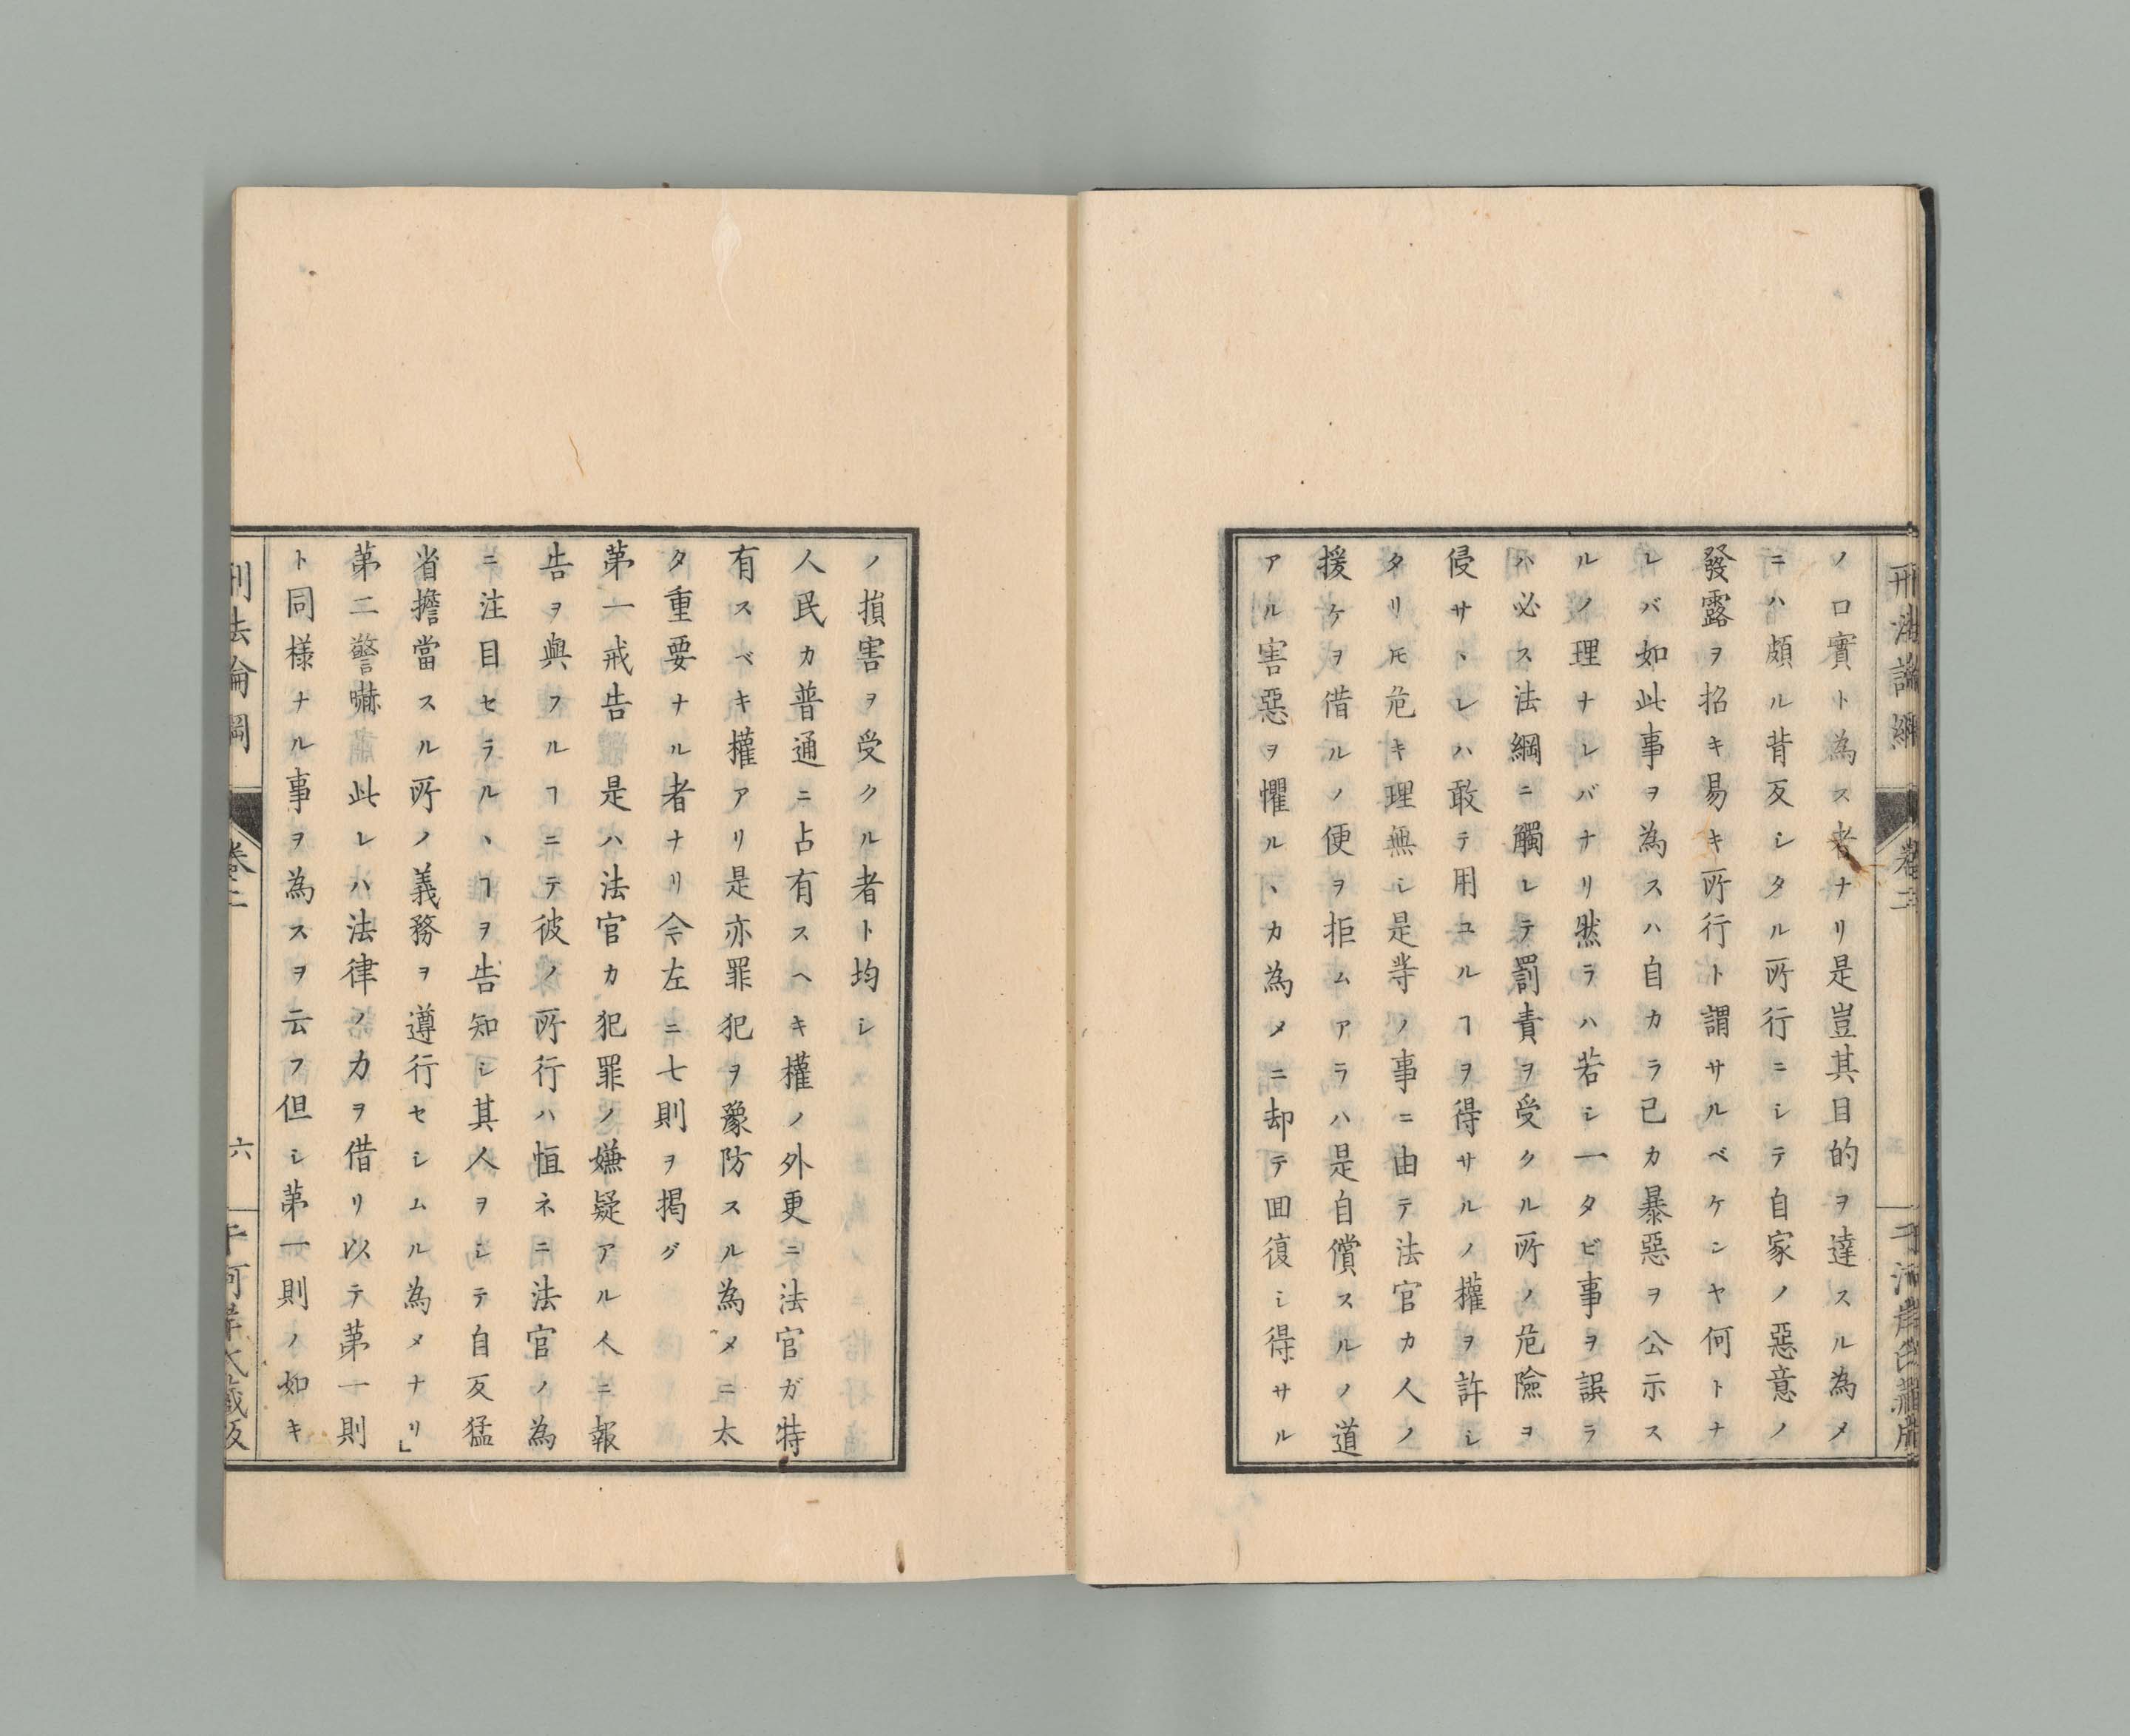 刑法論綱
卷二
ノ口實ト為ス者ナリ是豈其目的ヲ達スル為メ
ニハ頗ル背反シタル所行ニシテ自家ノ惡意ノ
發露ヲ招キ易キ所行ト謂サルベケンヤ何トナ
レバ如此事ヲ為スハ自カラ己カ暴惡ヲ公示ス
ルノ理ナレバナリ然ラハ若シ一タビ事ヲ誤ラ
ハ必ス法綱ニ觸レテ罰責ヲ受クル所ノ危險ヲ
侵サヽレハ敢テ用ユルヿヲ得サルノ權ヲ許シ
タリ𪜈危キ理無シ是等ノ事ニ由テ法官カ人ノ
援ケヲ借ルノ便ヲ拒ムアラハ是自償スルノ道
アル害惡ヲ懼ルヽカ為メニ却テ囬復シ得サル
ノ損害ヲ受クル者ト均シ
人民カ普通ニ占有スヘキ權ノ外更ニ法官ガ特
有スベキ權アリ是亦罪犯ヲ豫防スル為メニ太
タ重要ナル者ナリ今左ニ七則ヲ揭グ
第一戒告是ハ法官カ犯罪ノ嫌疑アル人ニ報
告ヲ與フルヿニテ彼ノ所行ハ恒ネニ法官ノ為
ニ注目セラルヽヿヲ告知シ其人ヲシテ自反猛
省擔當スル所ノ義務ヲ遵行セシムル為メナリ」
第二警嚇此レハ法律ノカヲ借リ以テ第一則
ト同樣ナル事ヲ為スヲ云フ但シ第一則ノ如キ
刑法論綱
卷二
六